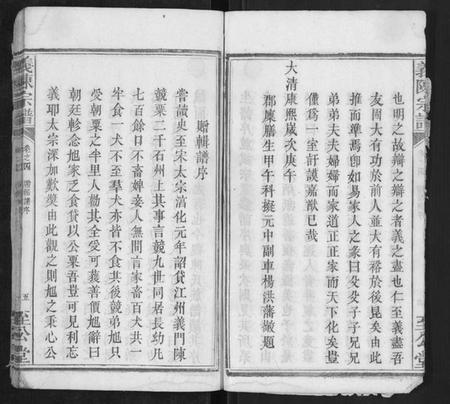 義陳宗譜
也明之故辯之辯之者義之盡也仁至義盡吾
友周大有功於前人並大有裕於後昆矣由此
推而準焉卽如易家人之彖曰父父子子兄兄
弟弟夫夫婦婦而家道正正家而天下化矣豈
僅爲一室訏謨嘉猷已哉
大清康熙歲次庚午
郡廩膳生甲午科擬元中副車楊洪藩敬題
至公堂
贈輯譜序
嘗讀史至宋太宗淳化元年詔貸江州義門陳
競粟二千石州上其事言競九世同居長幼凡
七百餘口不畜婢妾人無間言家畜百犬共一
牢食一犬不至羣犬亦皆不食其後競弟旭只
受朝粟之半里人勸其全受可裁善價旭辭曰
朝廷軫念旭家乏食貸以公粟吾豈可見利忘
義耶太宗深加歎奬由此觀之則旭之秉心公
義陳宗譜
卷之四
贈輯譜序
五
至公堂